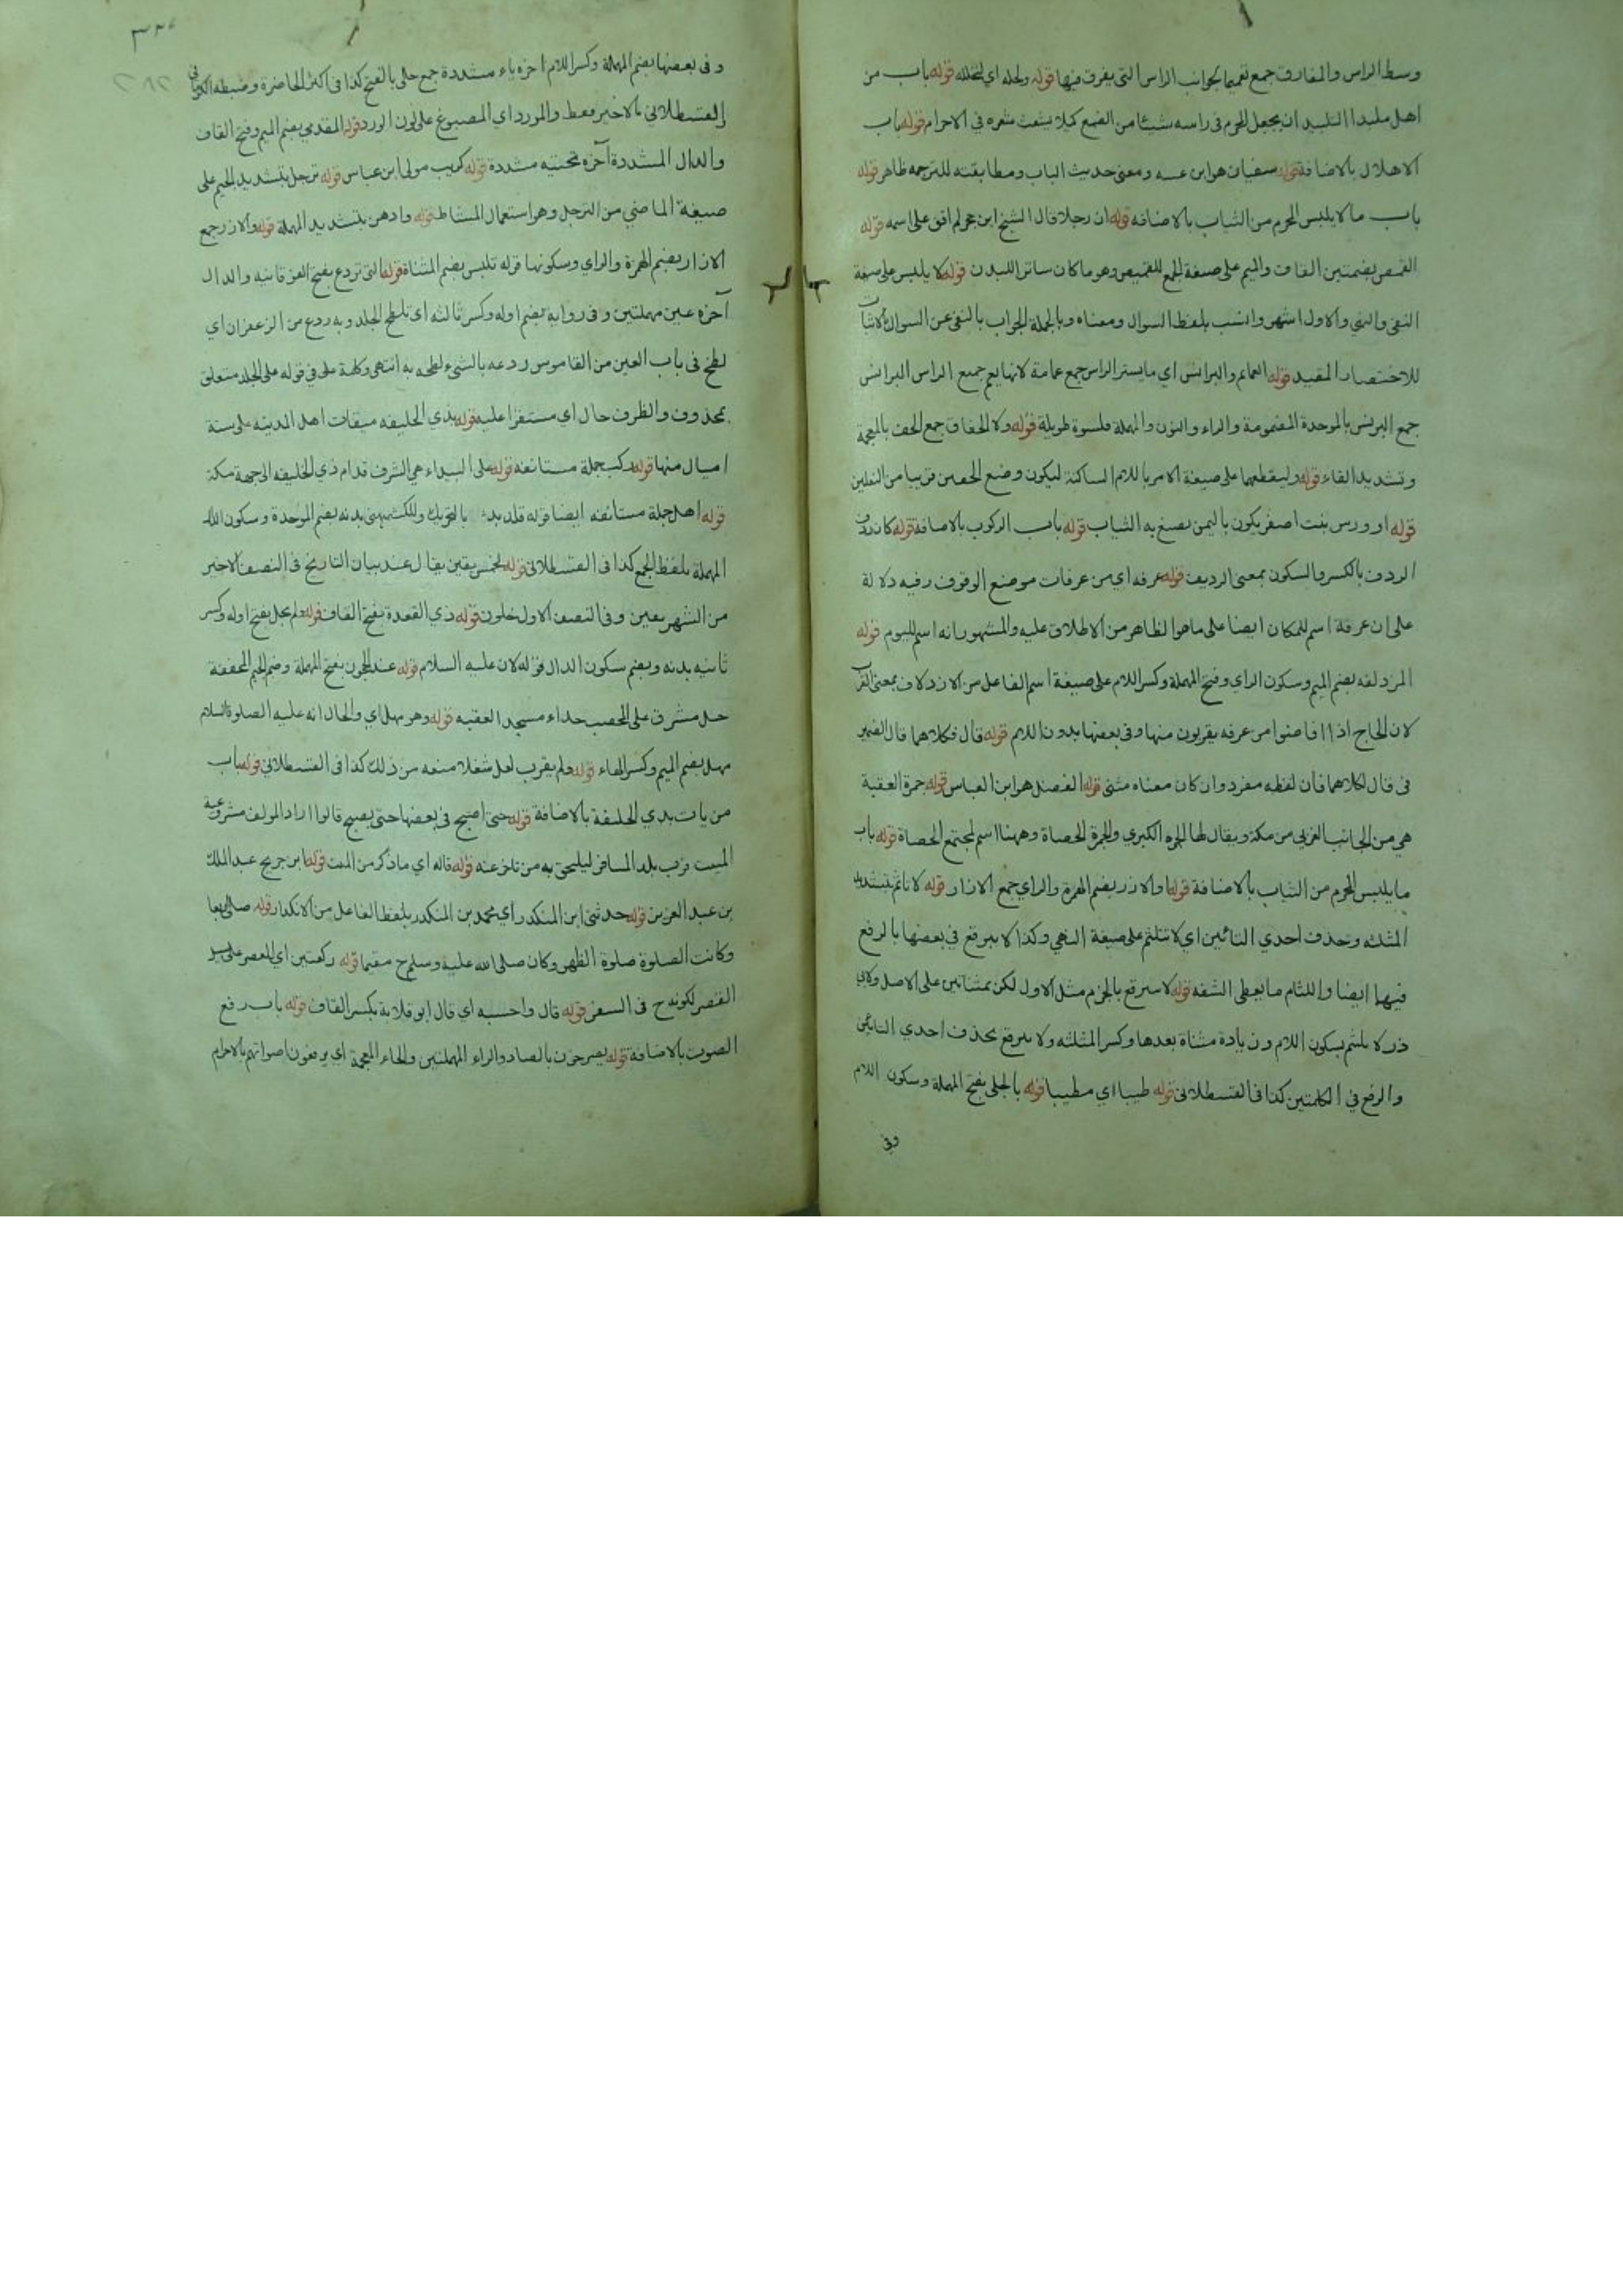 وسط الراس والمفارق جمع تعميما لجوانب الراس التى يفرق فيها قوله ولحله اي لتحلله قوله باب من
اهل ملبدا التلبيد ان يجعل المحرم فى راسه شيئا من الصمغ كيلا يتشعث شعره في الاحرام قوله باب
الاهلال بالاضافة قوله سفيان هو ابن ومعنى حديث الباب ومطابقته للترجمه ظاهر قوله
باب ما لا يلبس المحرم من الثياب بالاضافه قوله ان رجلا قال الشيخ ابن حجر لم اقف على اسمه قوله
القمص بضمتين القاف والميم على صيغة الجمع للقميص وهو ما كان ساتر اللبدن قوله لا يلبس على صيغة
النفى والنهي والاول اشهر وانسب بلفظ السوال ومعناه وبالجملة الجواب بالنفى عن السوال بالاثبات
للاختصار المفيد قوله العمايم والبرانس اي ما يستر الراس جمع عمامة لانها يعم جميع الراس البرانس
جمع البرنس بالموحدة المضمومة والراء والنون والمهملة قلنسوة طويلة قوله ولا الخفاف جمع الخف بالمعجمة
وتشديد الفاء قوله وليقطعهما على صيغة الامر باللام الساكنة ليكون وضع الخفين قريبا من النعلين
قوله او ورس بنت اصفر يكون باليمن يصبغ به الثياب قوله باب الركوب بالاضافة قوله كان ردف
الردف بالكسر والسكون بمعنى الرديف قوله عرفه اي من عرفات موضع الوقوف وفيه دلالة
على ان عرفة اسم للمكان ايضا على ما هو الظاهر من الاطلاق عليه والمشهور انه اسم لليوم قوله
المزدلفه بضم الميم وسكون الزاي وفتح المهملة وكسر اللام على صيغة اسم الفاعل من الازدلاف بمعنى القرب
لان الحاج اذا افاضوا من عرفه يقربون منها وفى بعضها بدون اللام قوله قال فكلاهما قال الضمير
فى قال لكلاهما فان لفظه مفرد وان كان معناه مثنى قوله الفضل هو ابن العباس قوله جمرة العقبة
هي من الجانب الغربى من مكة ويقال لها الجمره الكبرى والجمرة الحصاة وههنا اسم لمجتمع الحصاة قوله باب
ما يلبس المحرم من الثياب بالاضافة قوله والازر بضم الهمزة والزاي جمع الازار قوله لا تلثم بتشديد
المثلثه وحذف احدي التائين اي لا تتلثم على صيغة النهي وكذا لا تبرقع في بعضها بالرفع
فيهما ايضا واللثام ما يغطى الشفه قوله لا تبرقع بالجزم مثل الاول لكن بمثناتين على الاصل ولابي
ذر لا تلتثم بسكون اللام وزيادة مثناة بعدها وكسر المثلثه ولا تبرقع بحذف احدي التائين
والرفع في الكلمتين كذا فى القسطلانى قوله طيبا اي مطيبا قوله بالحلى بفتح المهملة وسكون اللام
وفى
وفى بعضها بضم المهملة وكسر اللام اخره ياء مشددة جمع حلى بالفتح كذا فى اكثر الحاضرة وضبطه الكرمانى
القسطلانى بالاخير فقط والمورد اي المصبوغ على لون الورد قوله المقدمي بضم الميم وفتح القاف
والدال المشددة آخره تحتيه مشددة قوله كريب مولى ابن عباس قوله ترجل بتشديد الجيم على
صيغة الماضي من الترجل وهو استعمال المشاط قوله وادهن بتشديد المهملة قوله والازر جمع
الازار بضم الهمزة والزاي وسكونها قوله تلبس بضم المثناة قوله التى تردع بفتح الفوقانيه والدال
آخره عين مهملتين وفى رواية بضم اوله وكسر ثالثه اى تلطخ الجلد وبه ردع من الزعفران اي
لطخ فى باب العين من القاموس ردعه بالشىء لطخه به انتهى وكلمة على في قوله على الجلد متعلق
بمحذوف والظرف حال اي مستقرا عليه قوله بذي الحليفه ميقات اهل المدينه على ستة
اميال منها قوله ركب جملة مستانفه قوله على البيداء هي الشرف قدام ذي الحليفه الى جهة مكة
قوله اهل جملة مستانفه ايضا قوله قلد بدنه بالتحريك وللكشميهني بدنه بضم الموحدة وسكون الدال
المهملة بلفظ الجمع كذا فى القسطلانى قوله لخمس بقين يقال عند بيان التاريخ فى النصف الاخير
من الشهر بقين وفى النصف الاول خلون قوله ذي القعدة بفتح القاف قوله ولم يحل بفتح اوله وكسر
ثانيه بدنه وبضم سكون الدال قوله لان عليه السلام قوله عند الحجون بفتح المهملة وضم الجيم المخففة
جبل مشرف على المحصب حذاء مسجد العقبه قوله وهو مهل اي والحال انه عليه الصلوة والسلام
مهل بضم الميم وكسر الهاء قوله ولم يقرب لعل شغلا منعه من ذلك كذا فى القسطلانى قوله باب
من بات بذي الحليفة بالاضافة قوله حتى اصبح فى بعضها حتى يصبح قالوا اراد المولف مشروعية
المبيت قرب بلد المسافر ليلحق به من تاخر عنه قوله قاله اي ما ذكر من المبيت قوله ابن جريج عبد الملك
بن عبد العزيز قوله حدثنى ابن المنكدر اي محمد بن المنكدر بلفظ الفاعل من الانكدار قوله صلى اربعا
وكانت الصلوة صلوة الظهر وكان صلى الله عليه وسلم ح مقيما قوله ركعتين اي العصر على
القصر لكونه ح فى السفر قوله قال واحسبه اي قال ابو قلابة بكسر القاف قوله باب رفع
الصوت بالاضافة قوله يصرخون بالصاد والراء المهملتين والخاء المعجمة اي يرفعون اصواتهم بالاحرام